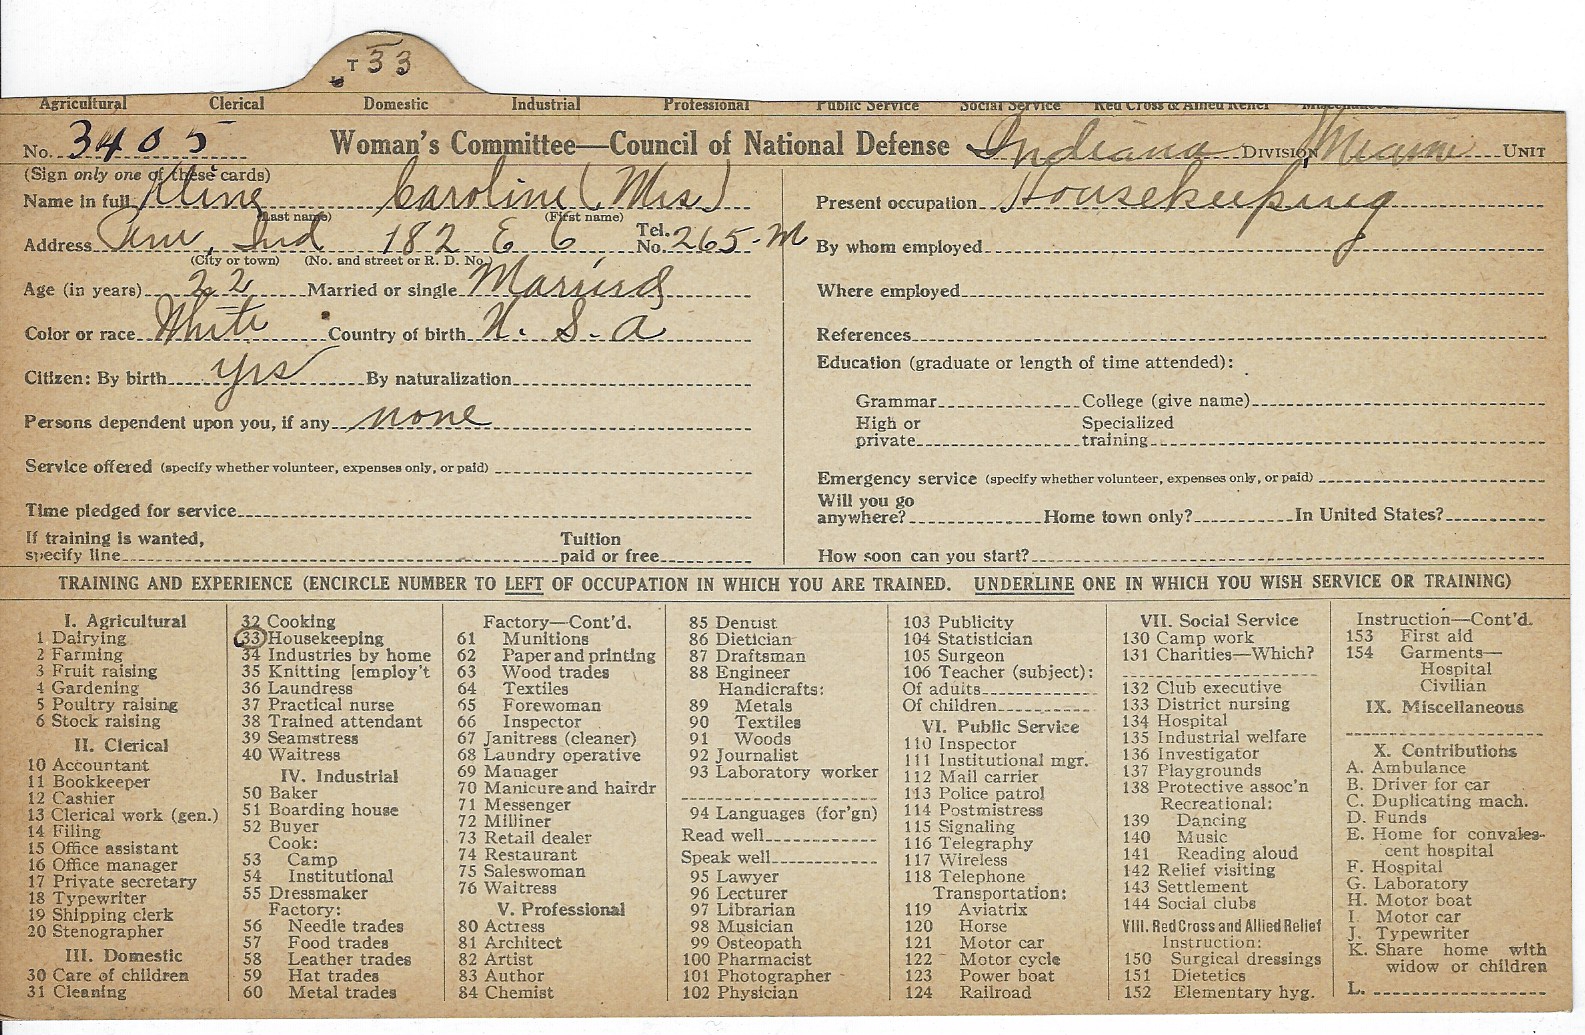 T 33
Agricultural Clerical Domestic Industrial Professional Public Service Social Service Red Cross & Allied Relief Miscellaneous
No. 3405 Woman's Committee—Council of National Defense Indiana DIVISION, Miami UNIT
(Sign only one of these cards)
Name in full Kling Caroline (Mrs)
(Last name) (First name)
Address Ind 182 E 6 Tel. No. 265-M
(City or town) (No. and street or R. D. No.)
Age (in years) 22 Married or single Married
Color or race White Country of birth U. S. A
Citizen: By birth yes By naturalization
Persons dependent upon you, if any none
Service offered (specify whether volunteer, expenses only, or paid)
Time pledged for service
If training is wanted, specify line Tuition paid or free
Present occupation Housekeeping
By whom employed
Where employed
References
Education (graduate or length of time attended):
Grammar College (give name)
High or private Specialized training
Emergency service (specify whether volunteer, expenses only, or paid)
Will you go anywhere? Home town only? In United States?
How soon can you start?
TRAINING AND EXPERIENCE (ENCIRCLE NUMBER TO LEFT OF OCCUPATION IN WHICH YOU ARE TRAINED. UNDERLINE ONE IN WHICH YOU WISH SERVICE OR TRAINING)
I. Agricultural
1 Dairying
2 Farming
3 Fruit raising
4 Gardening
5 Poultry raising
6 Stock raising
II. Clerical
10 Accountant
11 Bookkeeper
12 Cashier
13 Clerical work (gen.)
14 Filing
15 Office assistant
16 Office manager
17 Private secretary
18 Typewriter
19 Shipping clerk
20 Stenographer
III. Domestic
30 Care of children
31 Cleaning
32 Cooking
33 Housekeeping
34 Industries by home
35 Knitting [employ't
36 Laundress
37 Practical nurse
38 Trained attendant
39 Seamstress
40 Waitress
IV. Industrial
50 Baker
51 Boarding house
52 Buyer
Cook:
53 Camp
54 Institutional
55 Dressmaker
Factory:
56 Needle trades
57 Food trades
58 Leather trades
59 Hat trades
60 Metal trades
Factory—Cont'd.
61 Munitions
62 Paper and printing
63 Wood trades
64 Textiles
65 Forewoman
66 Inspector
67 Janitress (cleaner)
68 Laundry operative
69 Manager
70 Manicure and hairdr
71 Messenger
72 Milliner
73 Retail dealer
74 Restaurant
75 Saleswoman
76 Waitress
V. Professional
80 Actress
81 Architect
82 Artist
83 Author
84 Chemist
85 Dentist
86 Dietician
87 Draftsman
88 Engineer
Handicrafts:
89 Metals
90 Textiles
91 Woods
92 Journalist
93 Laboratory worker
94 Languages (for'gn)
Read well
Speak well
95 Lawyer
96 Lecturer
97 Librarian
98 Musician
99 Osteopath
100 Pharmacist
101 Photographer
102 Physician
103 Publicity
104 Statistician
105 Surgeon
106 Teacher (subject):
Of adults
Of children
VI. Public Service
110 Inspector
111 Institutional mgr.
112 Mail carrier
113 Police patrol
114 Postmistress
115 Signaling
116 Telegraphy
117 Wireless
118 Telephone
Transportation:
119 Aviatrix
120 Horse
121 Motor car
122 Motor cycle
123 Power boat
124 Railroad
VII. Social Service
130 Camp work
131 Charities—Which?
132 Club executive
133 District nursing
134 Hospital
135 Industrial welfare
136 Investigator
137 Playgrounds
138 Protective assoc'n
Recreational:
139 Dancing
140 Music
141 Reading aloud
142 Relief visiting
143 Settlement
144 Social clubs
VIII. Red Cross and Allied Relief
Instruction:
150 Surgical dressings
151 Dietetics
152 Elementary hyg.
Instruction—Cont'd.
153 First aid
154 Garments—
Hospital
Civilian
IX. Miscellaneous
X. Contributions
A. Ambulance
B. Driver for car
C. Duplicating mach.
D. Funds
E. Home for convales-
cent hospital
F. Hospital
G. Laboratory
H. Motor boat
I. Motor car
J. Typewriter
K. Share home with
widow or children
L.